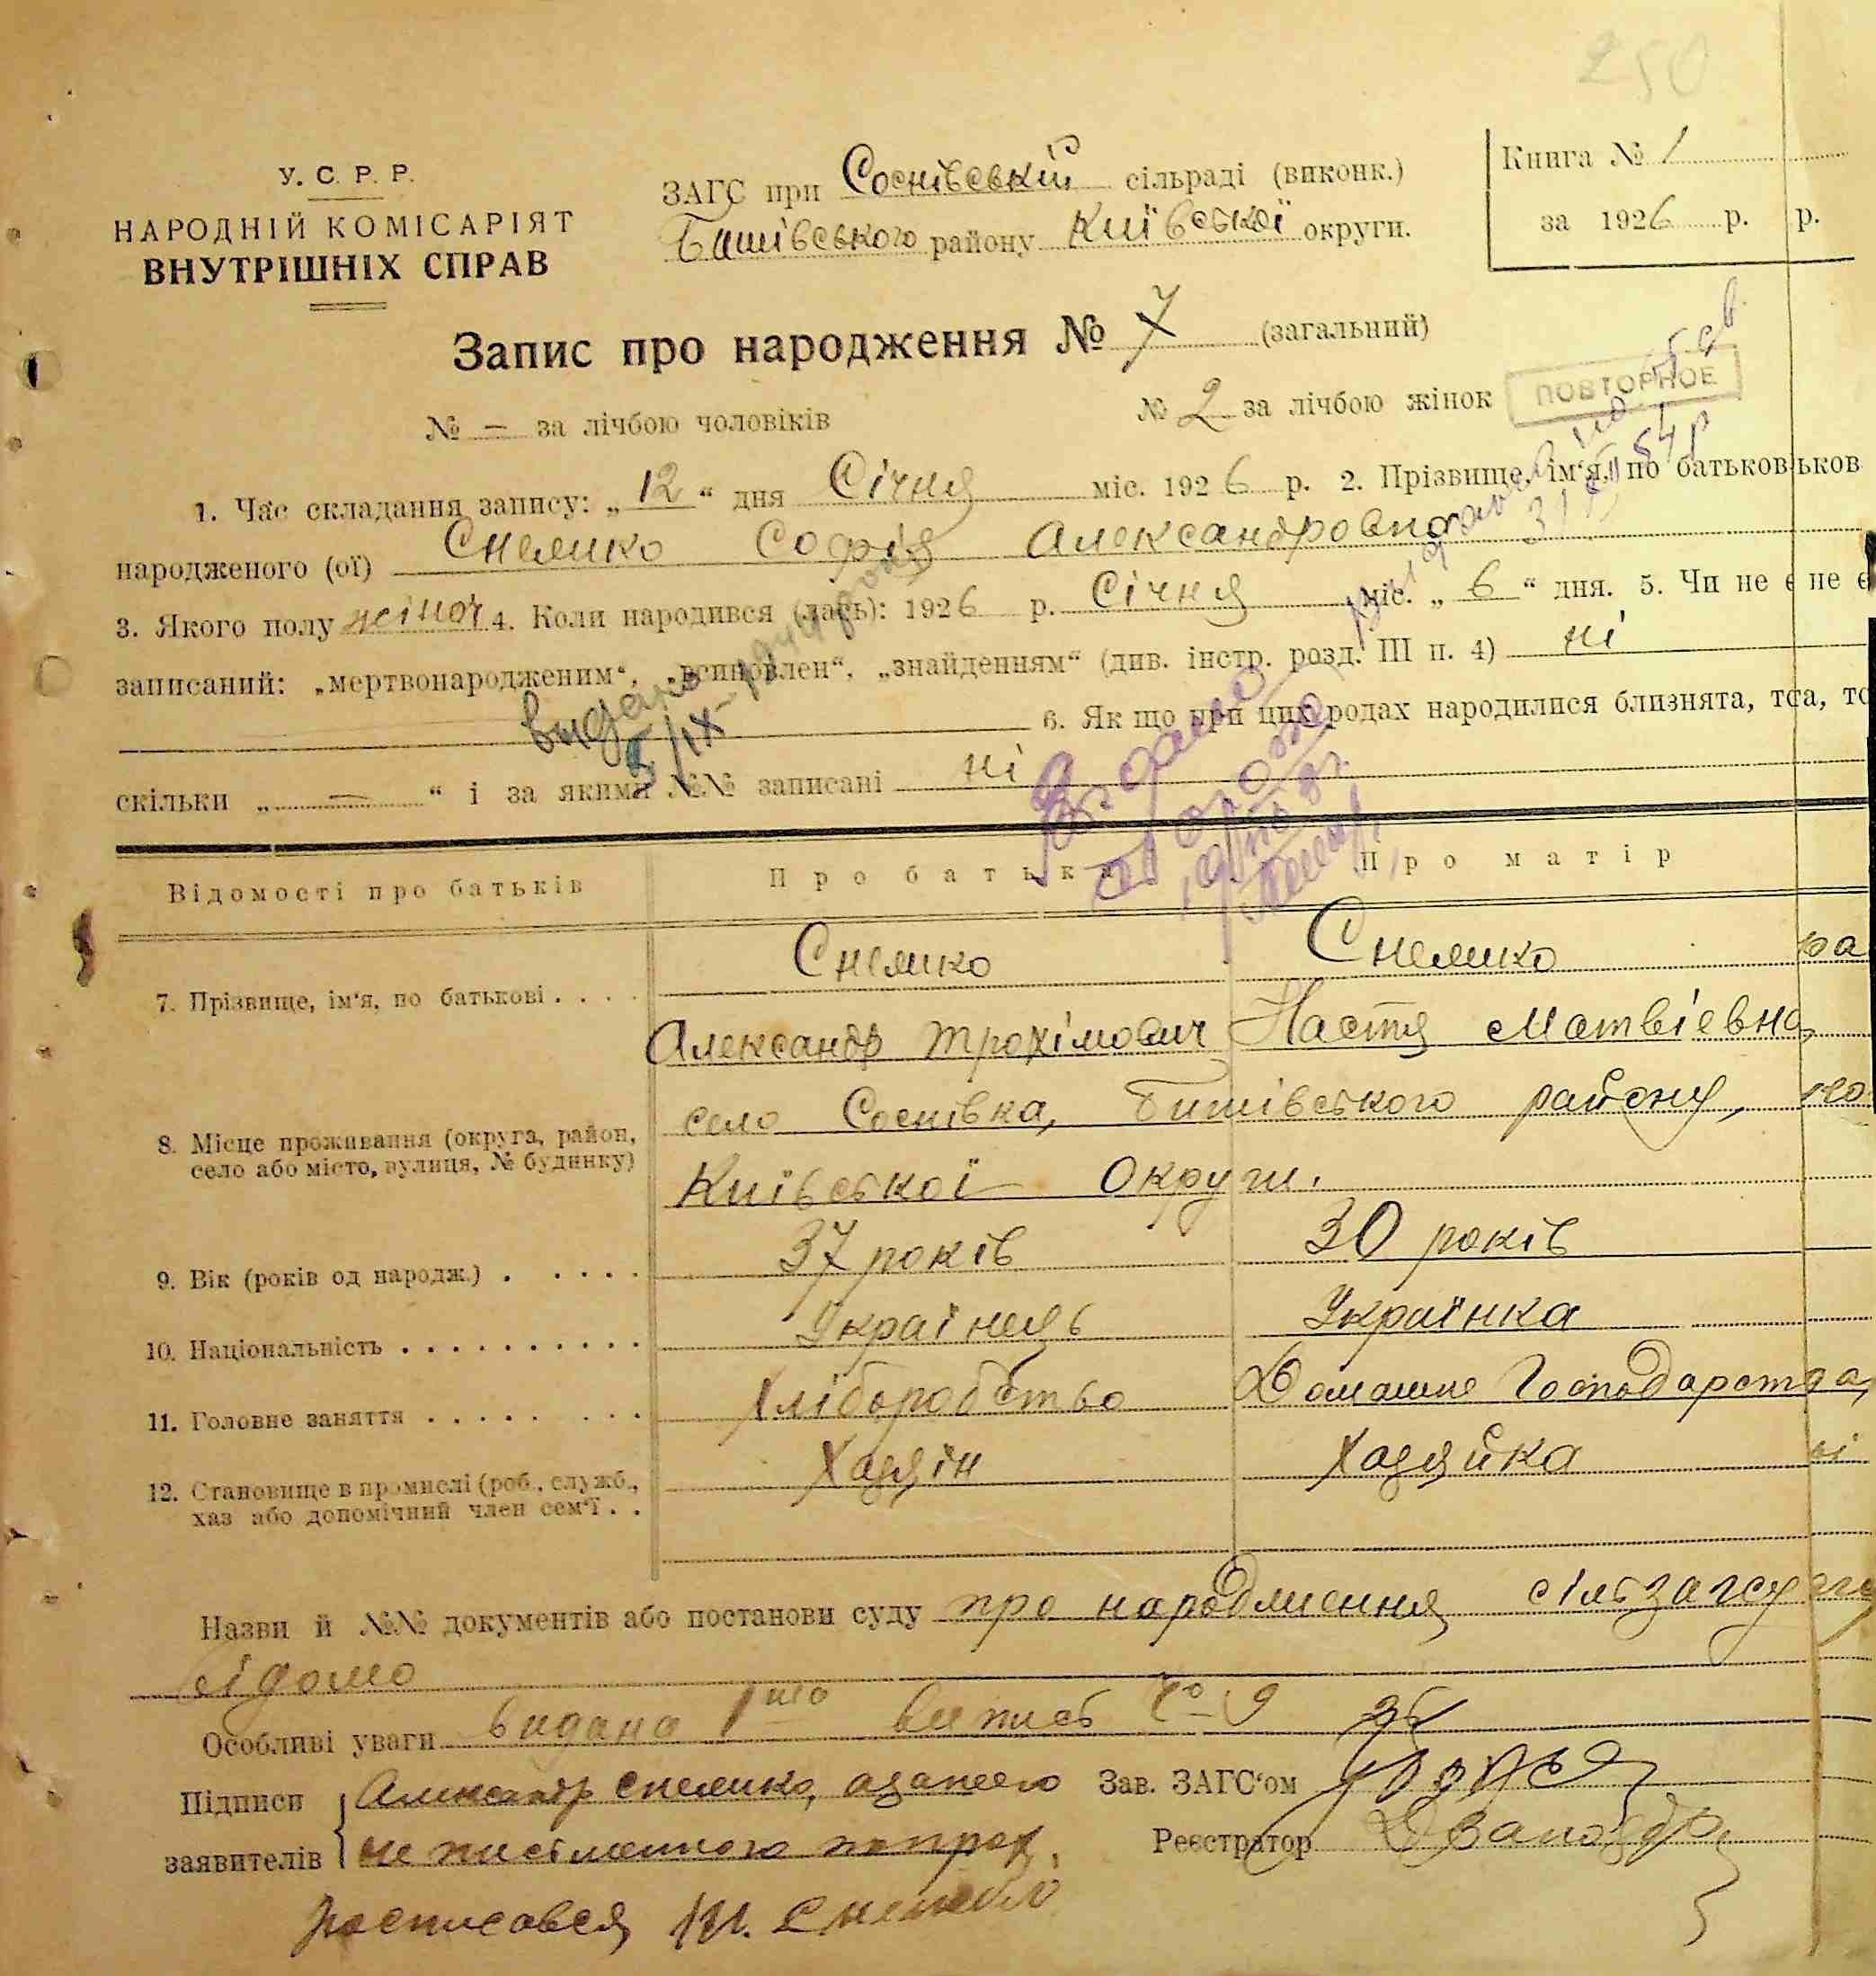 250
У. С. Р. Р.
НАРОДНІЙ КОМІСАРІЯТ
ВНУТРІШНІХ СПРАВ
ЗАГС при Соснівській сільраді (виконк.)
Бишівського району Київської округи.
Книга № 1
за 1926 р. р.
Запис про народження № 7 (загальний)
№ — за лічбою чоловіків № 2 за лічбою жінок
ПОВТОРНОЕ
1. Час складання запису: „12“ дня Січня міс. 1926 р. 2. Прізвище, ім‘я, по батьков ьков
народженого (ої) Снежко Софія Александровна
3. Якого полу жіноч 4. Коли народився (лась): 1926 р. Січня міс. „6“ дня. 5. Чи не є не є
записаний: „мертвонародженим“, „всиновлен“, „знайденням“ (див. інстр. розд. III п. 4) ні
видано
5/IX
6. Як що при цих родах народилися близнята, то а, то
скільки „—“ і за якими №№ записані ні
Відомості про батьків Про батька Про матір
7. Прізвище, ім‘я, по батькові . . . . Снежко Снежко
Александр Трохімович Настя Матвіевна
8. Місце проживання (округа, район, село або місто, вулиця, № будинку) село Соснівка, Бишівського району,
Київської Округи.
9. Вік (років од народж.) . . . . . 37 років 30 років
10. Національність . . . . . . . . . . Українець Українка
11. Головне заняття . . . . . . . . Хліборобство Домашнє Господарства
12. Становище в промислі (роб., служб., хаз або допомічний член сем‘ї . . Хазяін Хазяйка
Назви й №№ документів або постанови суду про народження сільзагсу
відомо
Особливі уваги видано 1 випись 9
Підписи Александр Снежко, а за него Зав. ЗАГС‘ом
заявителів не письменного попрох. Реєстратор
росписався